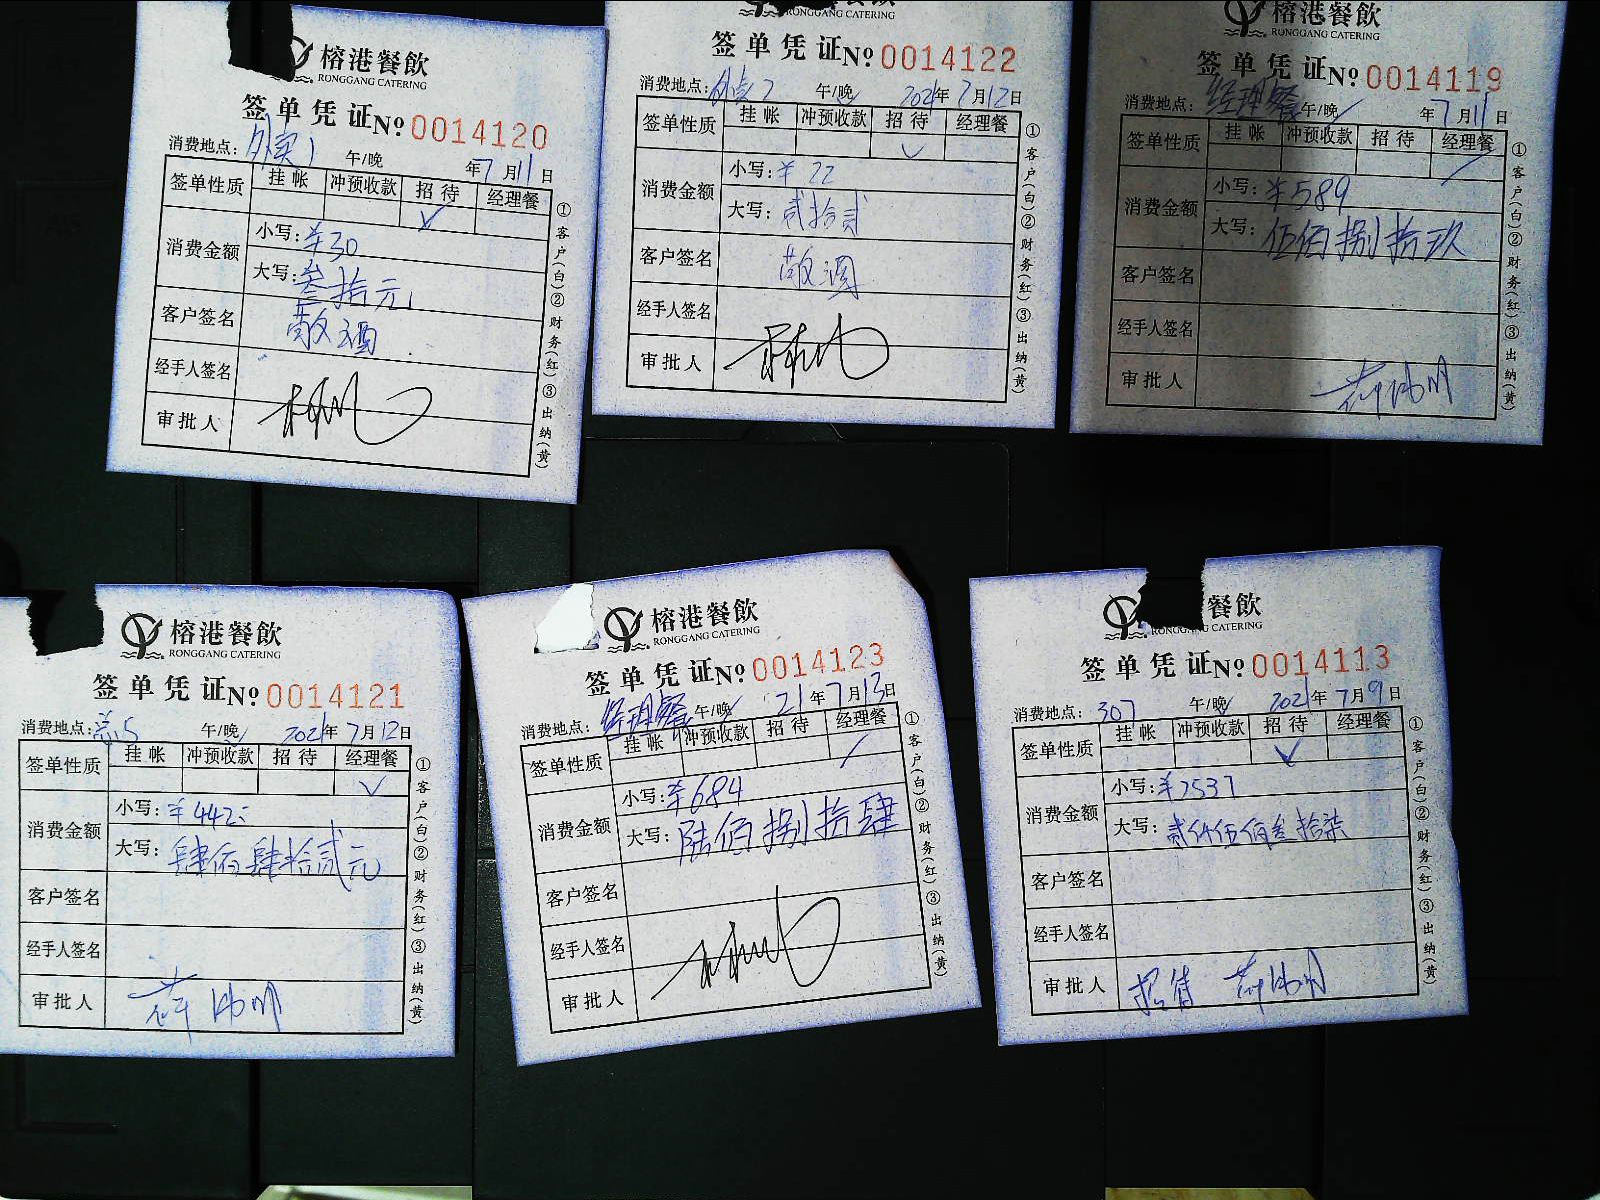 榕港餐飲
RONGGANG CATERING
签单凭证№0014120
消费地点：外卖1 午/晚 年7月11日
签单性质 挂帐 冲预收款 招待 经理餐
✓
消费金额 小写：¥30
大写：叁拾元
客户签名 敬酒
经手人签名
审批人
①客户(白)②财务(红)③出纳(黄)
RONGGANG CATERING
签单凭证№0014122
消费地点： 午/晚 2021年7月12日
签单性质 挂帐 冲预收款 招待 经理餐
✓
消费金额 小写：¥22
大写：贰拾贰
客户签名 敬酒
经手人签名
审批人
①客户(白)②财务(红)③出纳(黄)
榕港餐飲
RONGGANG CATERING
签单凭证№0014119
消费地点：经理餐 午/晚 年7月11日
签单性质 挂帐 冲预收款 招待 经理餐
✓
消费金额 小写：¥589
大写：伍佰捌拾玖
客户签名
经手人签名
审批人
①客户(白)②财务(红)③出纳(黄)
榕港餐飲
RONGGANG CATERING
签单凭证№0014121
消费地点： 午/晚 2021年7月12日
签单性质 挂帐 冲预收款 招待 经理餐
✓
消费金额 小写：¥442
大写：肆佰肆拾贰元
客户签名
经手人签名
审批人
①客户(白)②财务(红)③出纳(黄)
榕港餐飲
RONGGANG CATERING
签单凭证№0014123
消费地点：经理餐 午/晚 21年7月13日
签单性质 挂帐 冲预收款 招待 经理餐
✓
消费金额 小写：¥684
大写：陆佰捌拾肆
客户签名
经手人签名
审批人
①客户(白)②财务(红)③出纳(黄)
餐飲
RONGGANG CATERING
签单凭证№0014113
消费地点：307 午/晚 2021年7月9日
签单性质 挂帐 冲预收款 招待 经理餐
✓
消费金额 小写：¥2537
大写：贰仟伍佰叁拾柒
客户签名
经手人签名
审批人 招待
①客户(白)②财务(红)③出纳(黄)